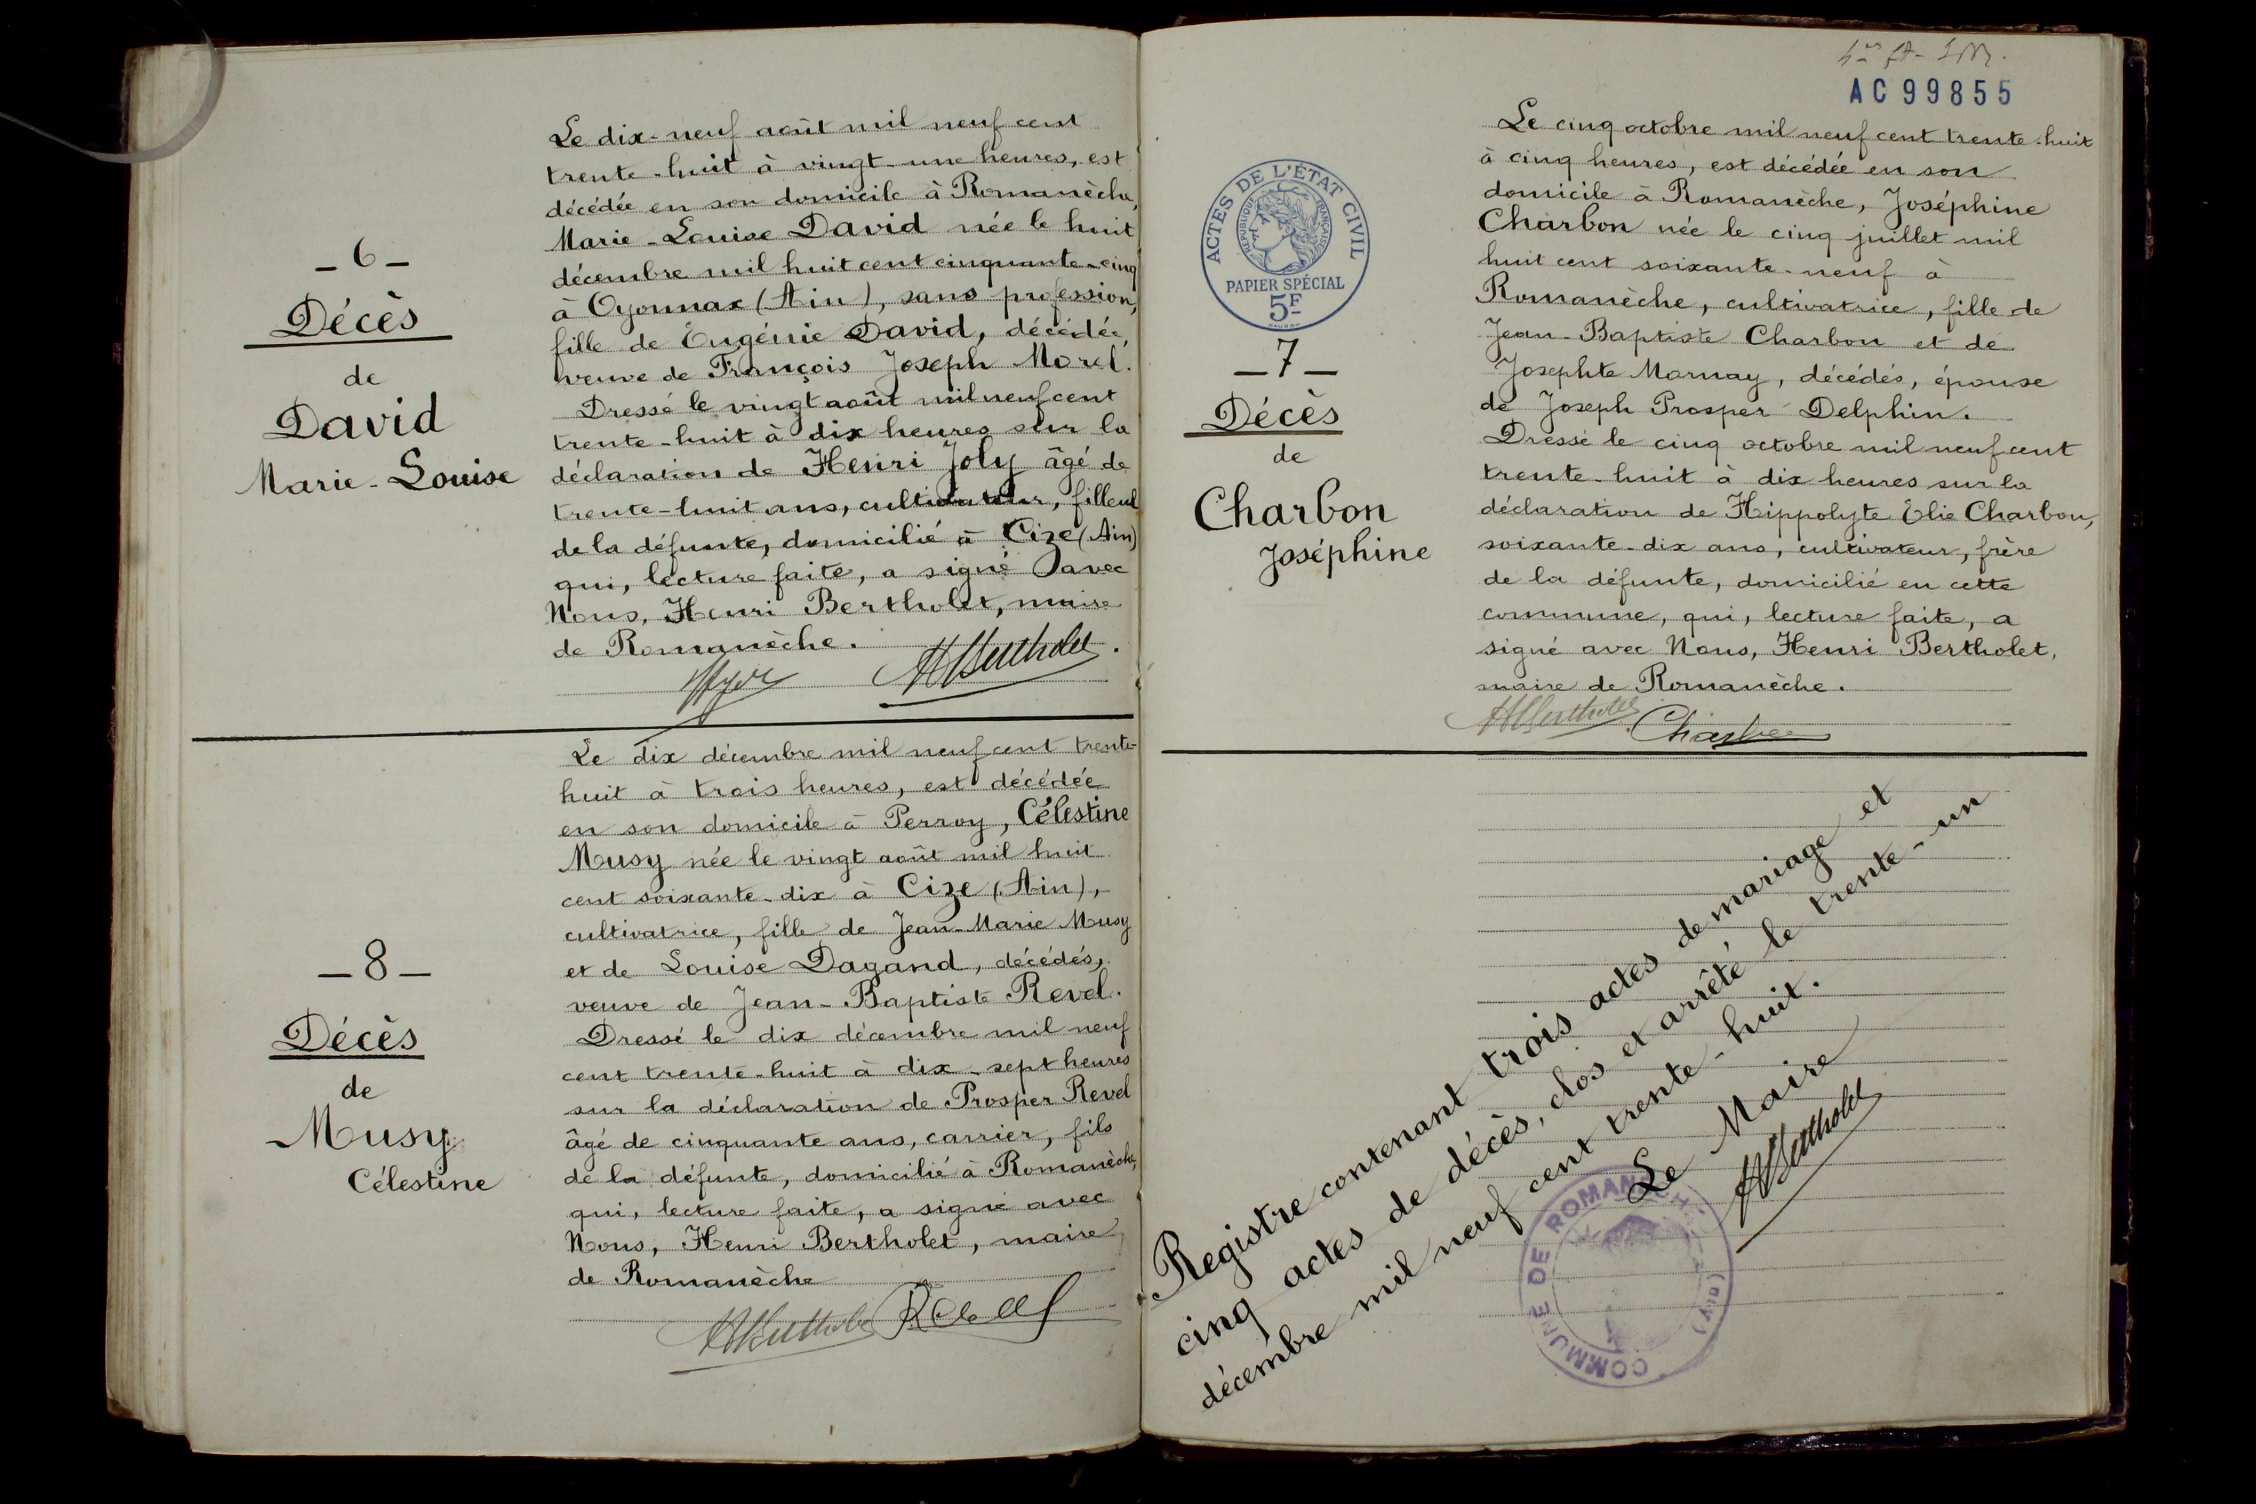 - 6 -
Décès
de
David
Marie-Louise
Le dix-neuf août mil neuf cent
trente-huit à vingt-une heures, est
décédée en son domicile à Romanèche,
Marie-Louise David née le huit
décembre mil huit cent cinquante-cinq
à Oyonnax (Ain), sans profession,
fille de Eugénie David, décédée,
veuve de François Joseph Morel.
Dressé le vingt août mil neuf cent
trente-huit à dix heures sur la
déclaration de Henri Joly âgé de
trente-huit ans, cultivateur, filleul
de la défunte, domicilié à Cize (Ain)
qui, lecture faite, a signé avec
Nous, Henri Bertholet, maire
de Romanèche.
HBertholet.
- 8 -
Décès
de
Musy
Célestine
Le dix décembre mil neuf cent trente-
huit à trois heures, est décédée
en son domicile à Perroy, Célestine
Musy née le vingt août mil huit
cent soixante-dix à Cize (Ain),
cultivatrice, fille de Jean-Marie Musy
et de Louise Dagand, décédés,
veuve de Jean-Baptiste Revel.
Dressé le dix décembre mil neuf
cent trente-huit à dix-sept heures
sur la déclaration de Prosper Revel
âgé de cinquante ans, carrier, fils
de la défunte, domicilié à Romanèche,
qui, lecture faite, a signé avec
Nous, Henri Bertholet, maire
de Romanèche
HBertholet Revel
AC 99855
ACTES DE L'ÉTAT CIVIL
RÉPUBLIQUE FRANÇAISE
PAPIER SPÉCIAL
5F
- 7 -
Décès
de
Charbon
Joséphine
Le cinq octobre mil neuf cent trente-huit
à cinq heures, est décédée en son
domicile à Romanèche, Joséphine
Charbon née le cinq juillet mil
huit cent soixante-neuf à
Romanèche, cultivatrice, fille de
Jean-Baptiste Charbon et de
Josephte Mornay, décédés, épouse
de Joseph Prosper Delphin.
Dressé le cinq octobre mil neuf cent
trente-huit à dix heures sur la
déclaration de Hippolyte Elie Charbon,
soixante-dix ans, cultivateur, frère
de la défunte, domicilié en cette
commune, qui, lecture faite, a
signé avec Nous, Henri Bertholet,
maire de Romanèche.
HBertholet Charbon
Registre contenant trois actes de mariage et
cinq actes de décès, clos et arrêté le trente-un
décembre mil neuf cent trente-huit.
Le Maire
HBertholet
COMMUNE DE ROMANÈCHE (Ain)